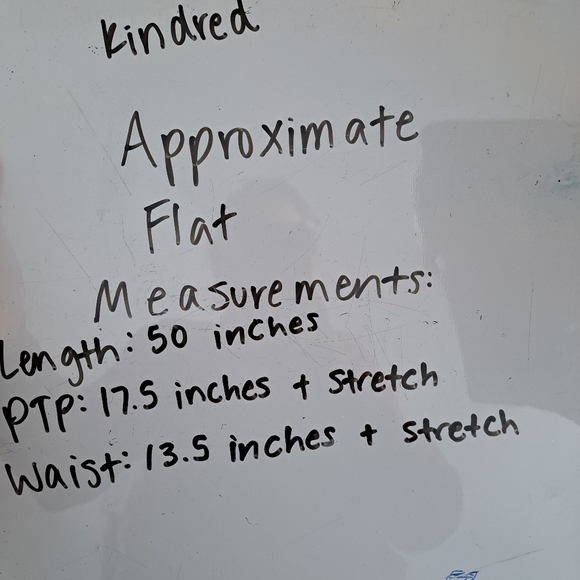 Kindred
Approximate
Flat
Measurements:
Length: 50 inches
PTP: 17.5 inches + stretch
Waist: 13.5 inches + stretch